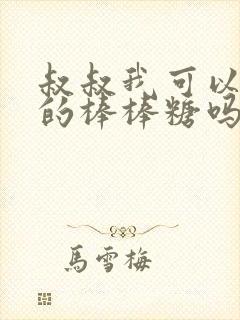 叔叔我可以
的棒棒糖吗
馬雪梅